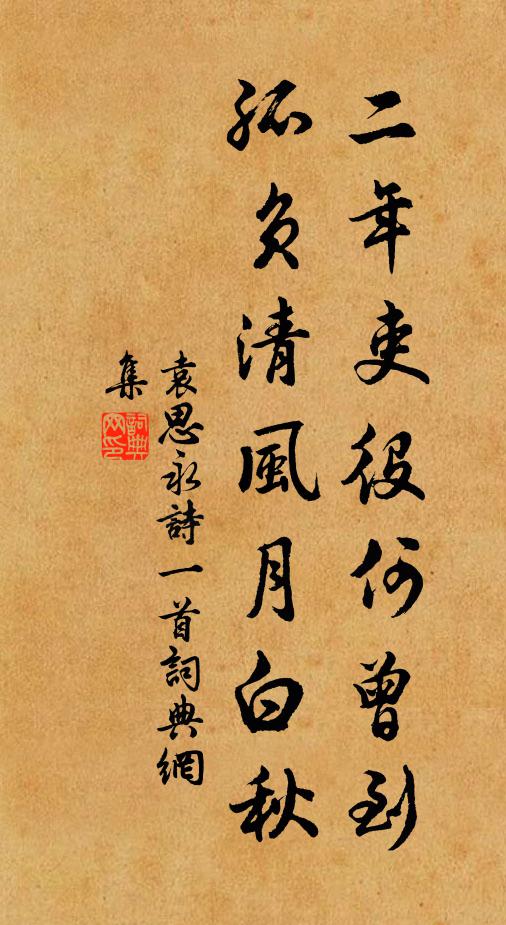 二年吏役何曾到
孤负清風月白秋
袁思永詩一首詞典網
集
詞典网印